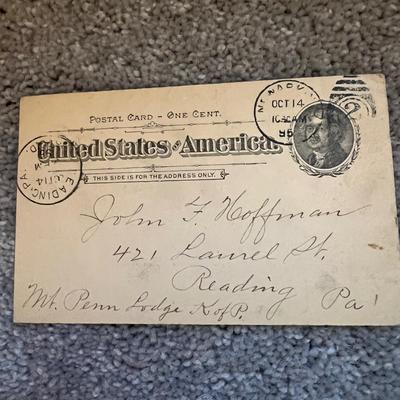 POSTAL CARD – ONE CENT.
United States of America.
THIS SIDE IS FOR THE ADDRESS ONLY.
OCT 14
96
READING, PA.
OCT 14
John F. Hoffman
421 Laurel St.
Reading
Pa
Mt. Penn Lodge K of P.